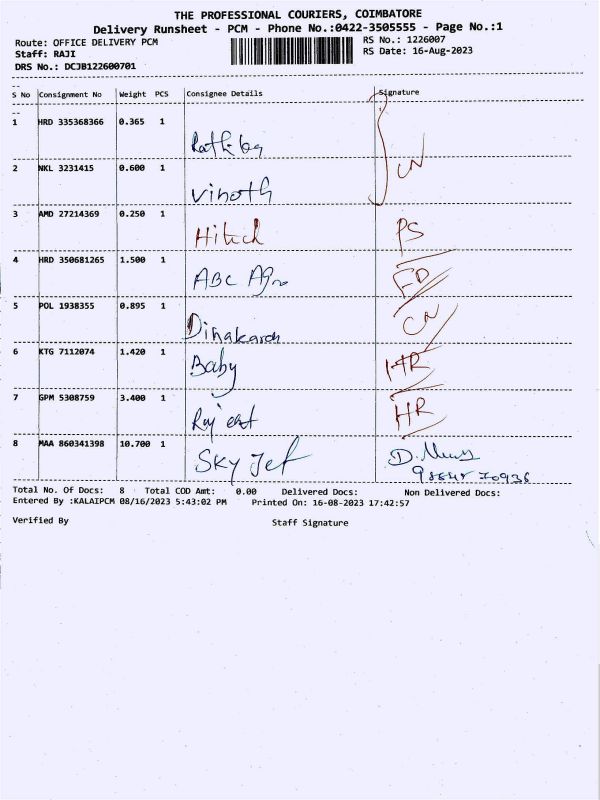 THE PROFESSIONAL COURIERS, COIMBATORE
Delivery Runsheet - PCM - Phone No.:0422-3505555 - Page No.:1
Route: OFFICE DELIVERY PCM RS No.: 1226007
Staff: RAJI RS Date: 16-Aug-2023
DRS No.: DCJB122600701
S No Consignment No Weight PCS Consignee Details Signature
1 HRD 335368366 0.365 1
CN
2 NKL 3231415 0.600 1
Vinoth
3 AMD 27214369 0.250 1
Hitech PS
4 HRD 350681265 1.500 1
ABC Agro FD
5 POL 1938355 0.895 1 CN
Dinakaran
6 KTG 7112074 1.420 1
Baby HR
7 GPM 5308759 3.400 1
Raj HR
8 MAA 860341398 10.700 1
Sky Jet D.
Total No. Of Docs: 8 Total COD Amt: 0.00 Delivered Docs: Non Delivered Docs:
Entered By :KALAIPCM 08/16/2023 5:43:02 PM Printed On: 16-08-2023 17:42:57
Verified By Staff Signature